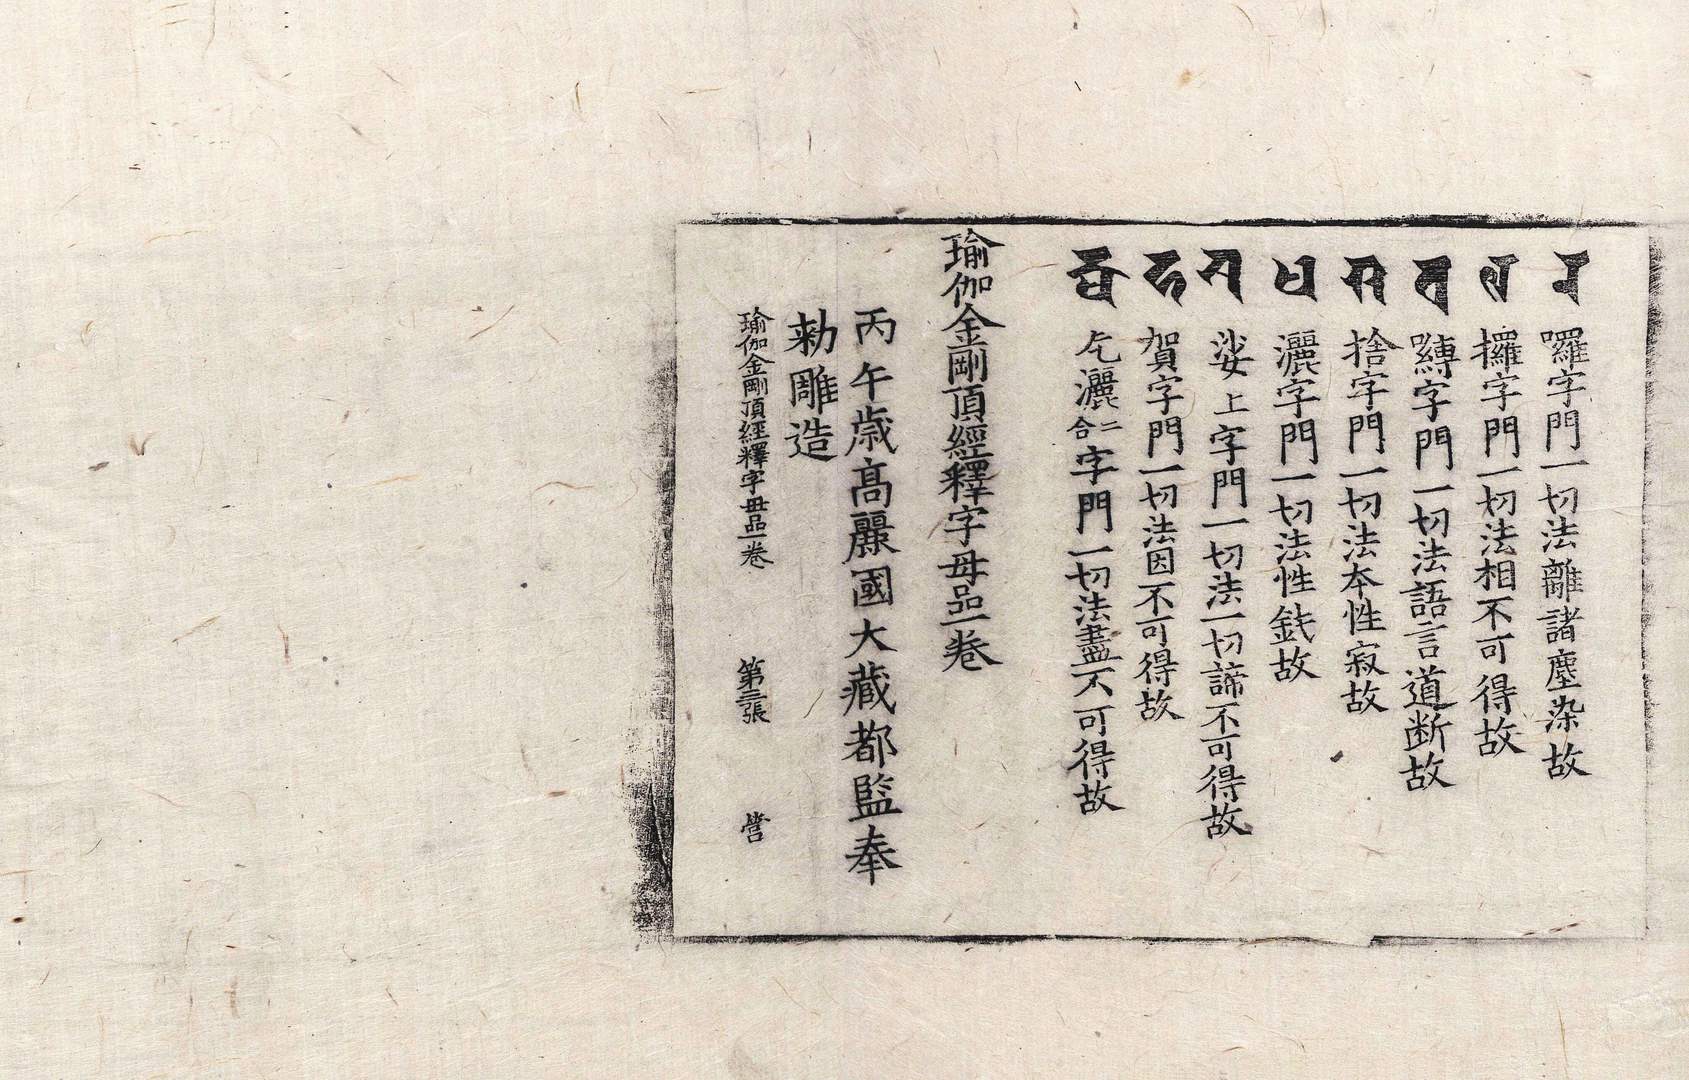 𑖨 囉字門一切法離諸塵染故
𑖩 攞字門一切法相不可得故
𑖪 嚩字門一切法語言道断故
𑖫 捨字門一切法本性寂故
𑖬 灑字門一切法性鈍故
𑖭 娑上字門一切法一切諦不可得故
𑖮 賀字門一切法因不可得故
𑖎𑖿𑖬 乞灑二合字門一切法盡不可得故
瑜伽金剛頂經釋字母品一卷
丙午歳高麗國大藏都監奉
勅雕造
瑜伽金剛頂經釋字母品一卷 第三張 營